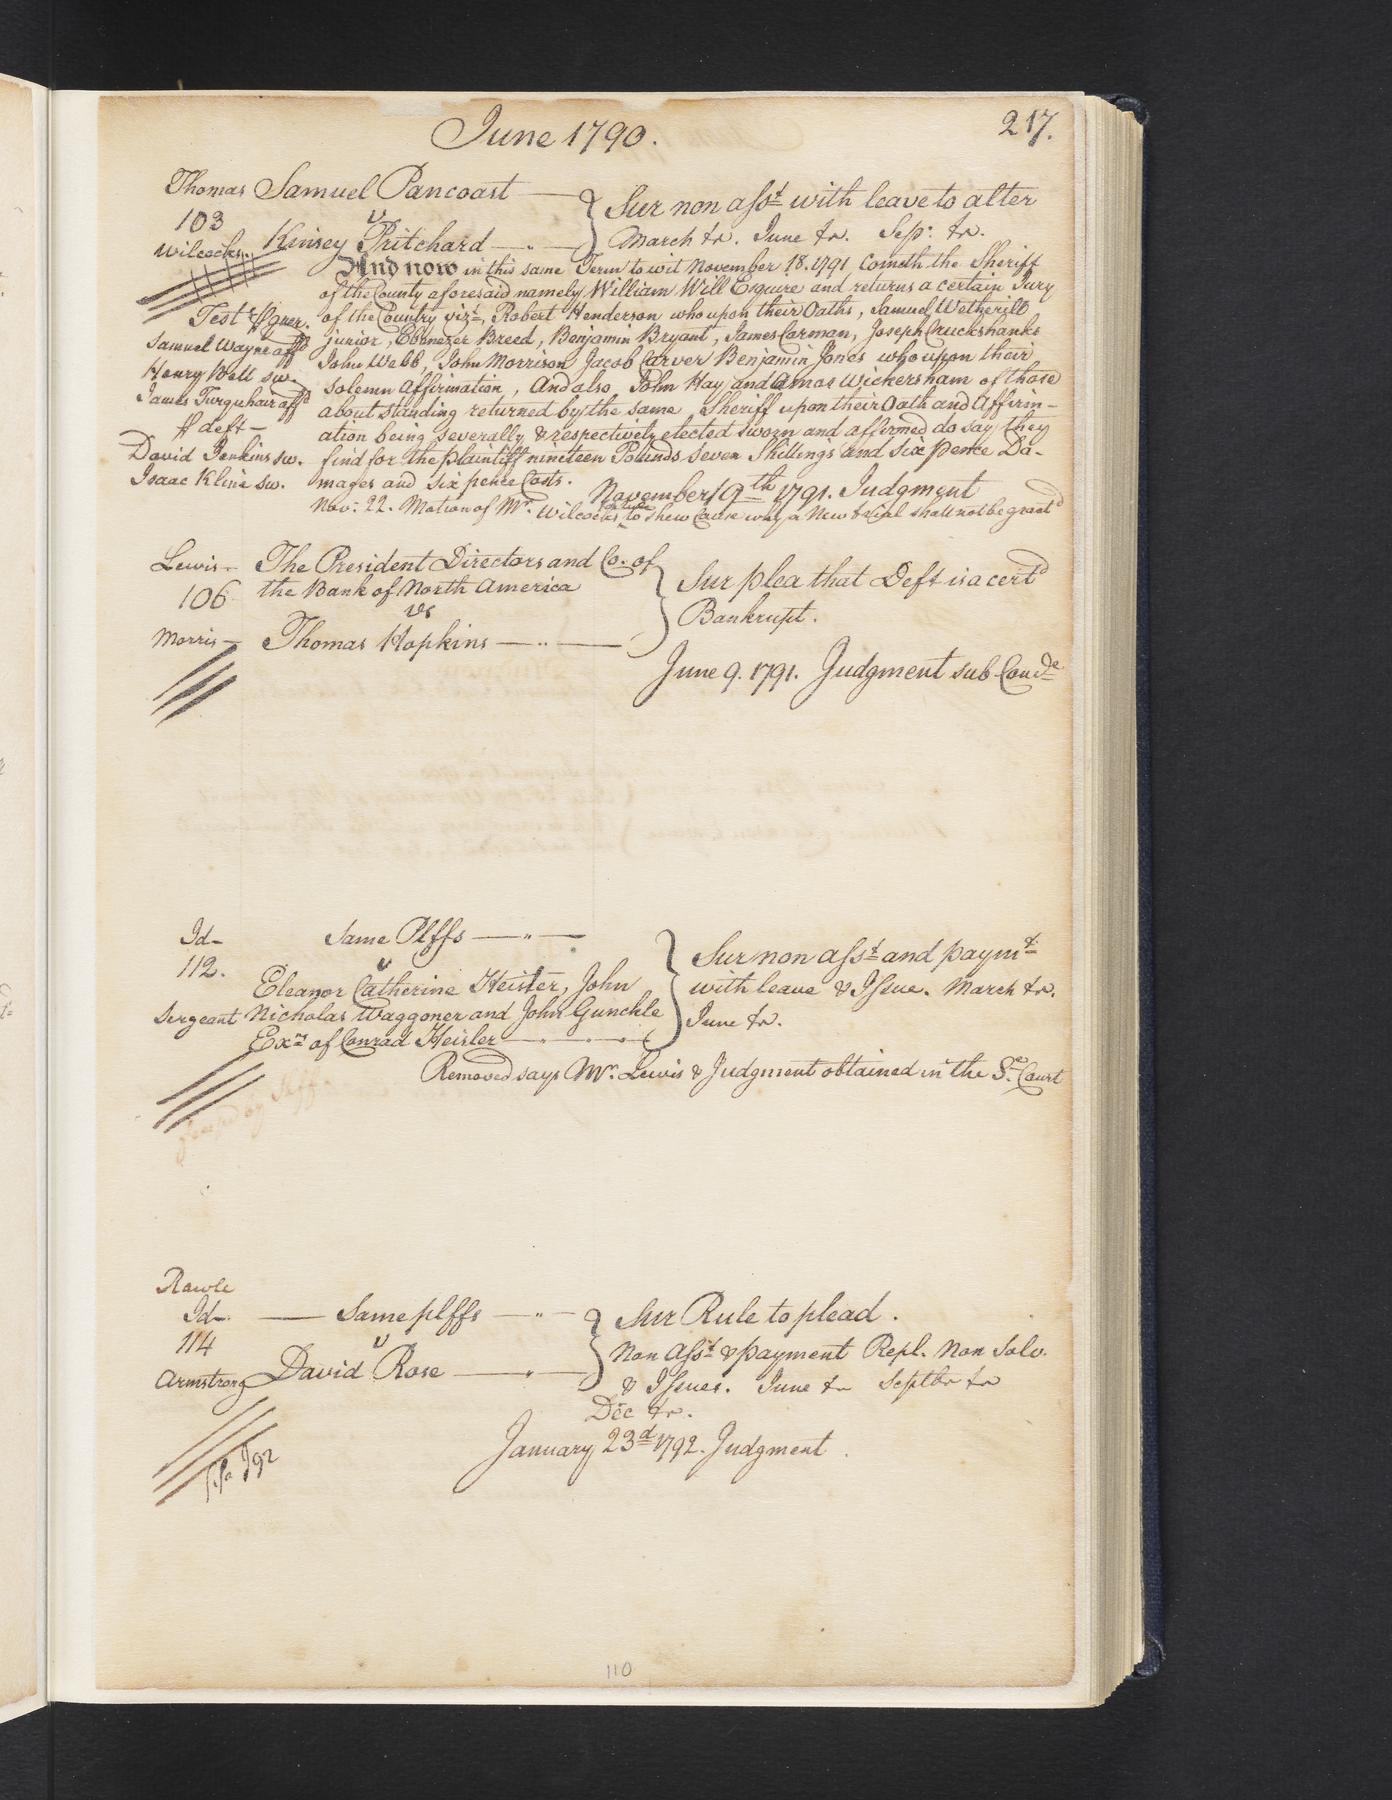 June 1790.
217.
Thomas Samuel Pancoast
103 v
Wilcocks. Kinsey Pritchard
Sur non asst with leave to alter
March tr. June tr. Sepr. tr.
And now in this same Term to wit November 18. 1791 cometh the Sheriff
of the County aforesaid namely William Will Esquire and returns a certain Jury
of the Country vizt, Robert Henderson who upon their Oaths, Samuel Wetherill
junior, Ebenezer Breed, Benjamin Bryant, James Carman, Joseph Cruckshanks
John Webb, John Morrison Jacob Carver Benjamin Jones who upon their
solemn Affirmation, And also John Hay and Amos Wickersham of those
about standing returned by the same Sheriff upon their Oath and Affirm-
ation being severally & respectively elected sworn and affirmed do say they
find for the plaintiff nineteen Pounds seven Shillings and six pence Da-
mages and six pence Costs.
November 19th 1791. Judgment
Nov: 22. Motion of Mr. Wilcocks to shew Cause why a New trial shall not be grantd
Test
Samuel Wayne affd
Henry Bell sw.
James affd
deft-
David Jenkins sw.
Isaac Kline sw.
Lewis- The President Directors and Co. of
106 the Bank of North America
vs
Morris- Thomas Hopkins
Sur plea that Deft is a certd
Bankrupt.
June 9. 1791. Judgment sub Conde
Id- Same Plffs
112. v
Eleanor Catherine Heister, John
Sergeant Nicholas Waggoner and John Gunckle
Exrs of Conrad Heisler
Sur non asst and paymt
with leave & Issue. March tr.
June tr.
Removed says Mr. Lewis & Judgment obtained in the Se. Court
Rawle
Id- Same plffs
114 v
Armstrong David Rose
Sur Rule to plead.
Non Asst & payment Repl. Non Solv.
& Issues. June tr Septbr tr
Dec tr.
January 23d 1792. Judgment.
110